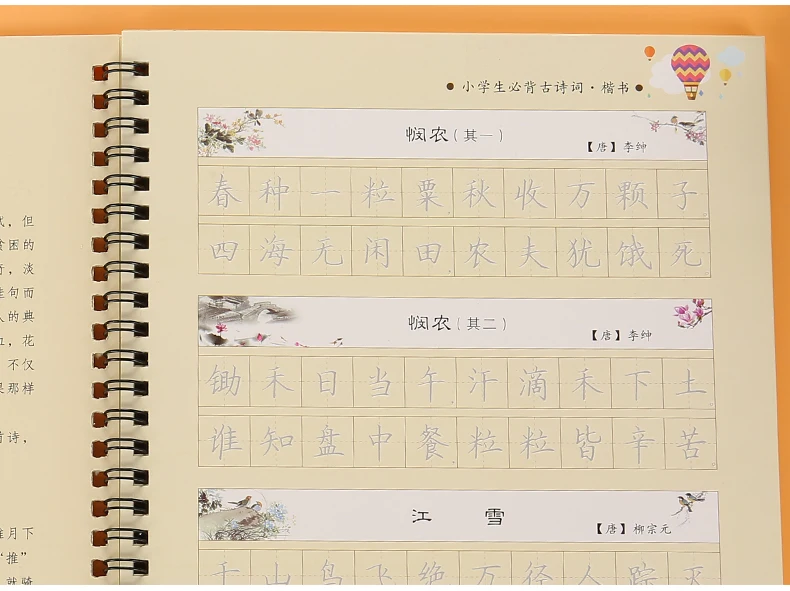 式，但
贫困的
淡
佳句而
人的典
花
不仅
果那样
首诗，
月下
“推”
就骑
小学生必背古诗词·楷书
悯农（其一）
【唐】李绅
春种一粒粟秋收万颗子
四海无闲田农夫犹饿死
悯农（其二）
【唐】李绅
锄禾日当午汗滴禾下土
谁知盘中餐粒粒皆辛苦
江 雪
【唐】柳宗元
千山鸟飞绝万径人踪灭